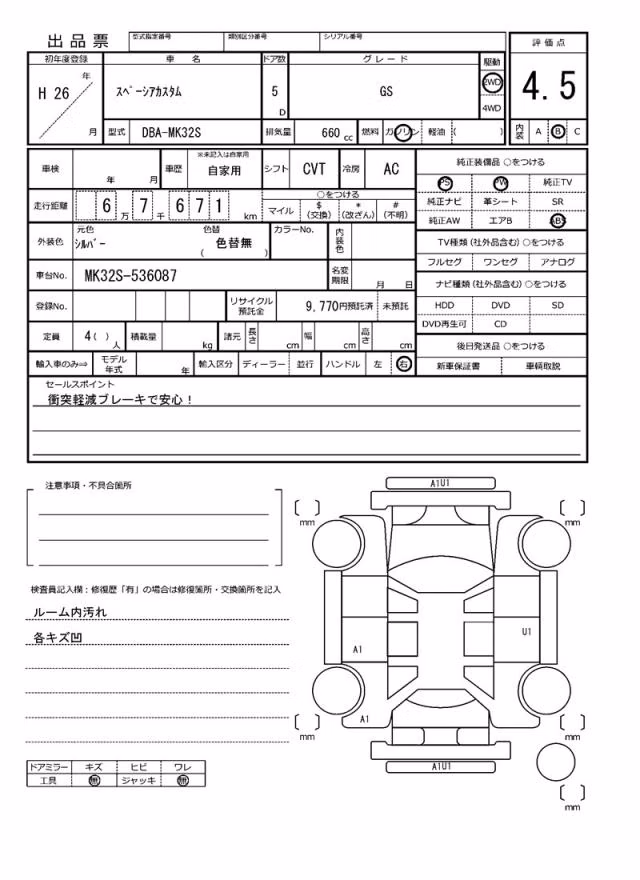 出品票 型式指定番号 類別区分番号 シリアル番号 評価点
初年度登録 車名 ドア数 グレード 駆動
H 26 年 月 スペーシアカスタム 5 D GS 2WD 4WD 4.5
型式 DBA-MK32S 排気量 660 cc 燃料 ガソリン 軽油 ( ) 内装 A B C
車検 年 月 車歴 ※未記入は自家用 自家用 シフト CVT 冷房 AC 純正装備品 ○をつける
PS PW 純正TV
走行距離 6 万 7 千 6 7 1 km ○をつける 純正ナビ 革シート SR
マイル $ (交換) * (改ざん) # (不明) 純正AW エアB ABS
外装色 元色 シルバー 色替 ( 色替無 ) カラーNo. 内装色 TV種類 (社外品含む) ○をつける
フルセグ ワンセグ アナログ
車台No. MK32S-536087 名変期限 月 日 ナビ種類 (社外品含む) ○をつける
登録No. リサイクル預託金 9,770円預託済 未預託 HDD DVD SD
DVD再生可 CD
定員 4( ) 人 積載量 kg 諸元 長さ cm 幅 cm 高さ cm 後日発送品 ○をつける
輸入車のみ⇒ モデル年式 年 輸入区分 ディーラー 並行 ハンドル 左 右 新車保証書 車輌取説
セールスポイント
衝突軽減ブレーキで安心!
注意事項・不具合箇所
A1U1
mm mm
検査員記入欄:修復歴「有」の場合は修復箇所・交換箇所を記入
ルーム内汚れ
各キズ凹
U1
A1
A1
mm mm
A1U1
ドアミラー キズ ヒビ ワレ
工具 無 ジャッキ 無
mm